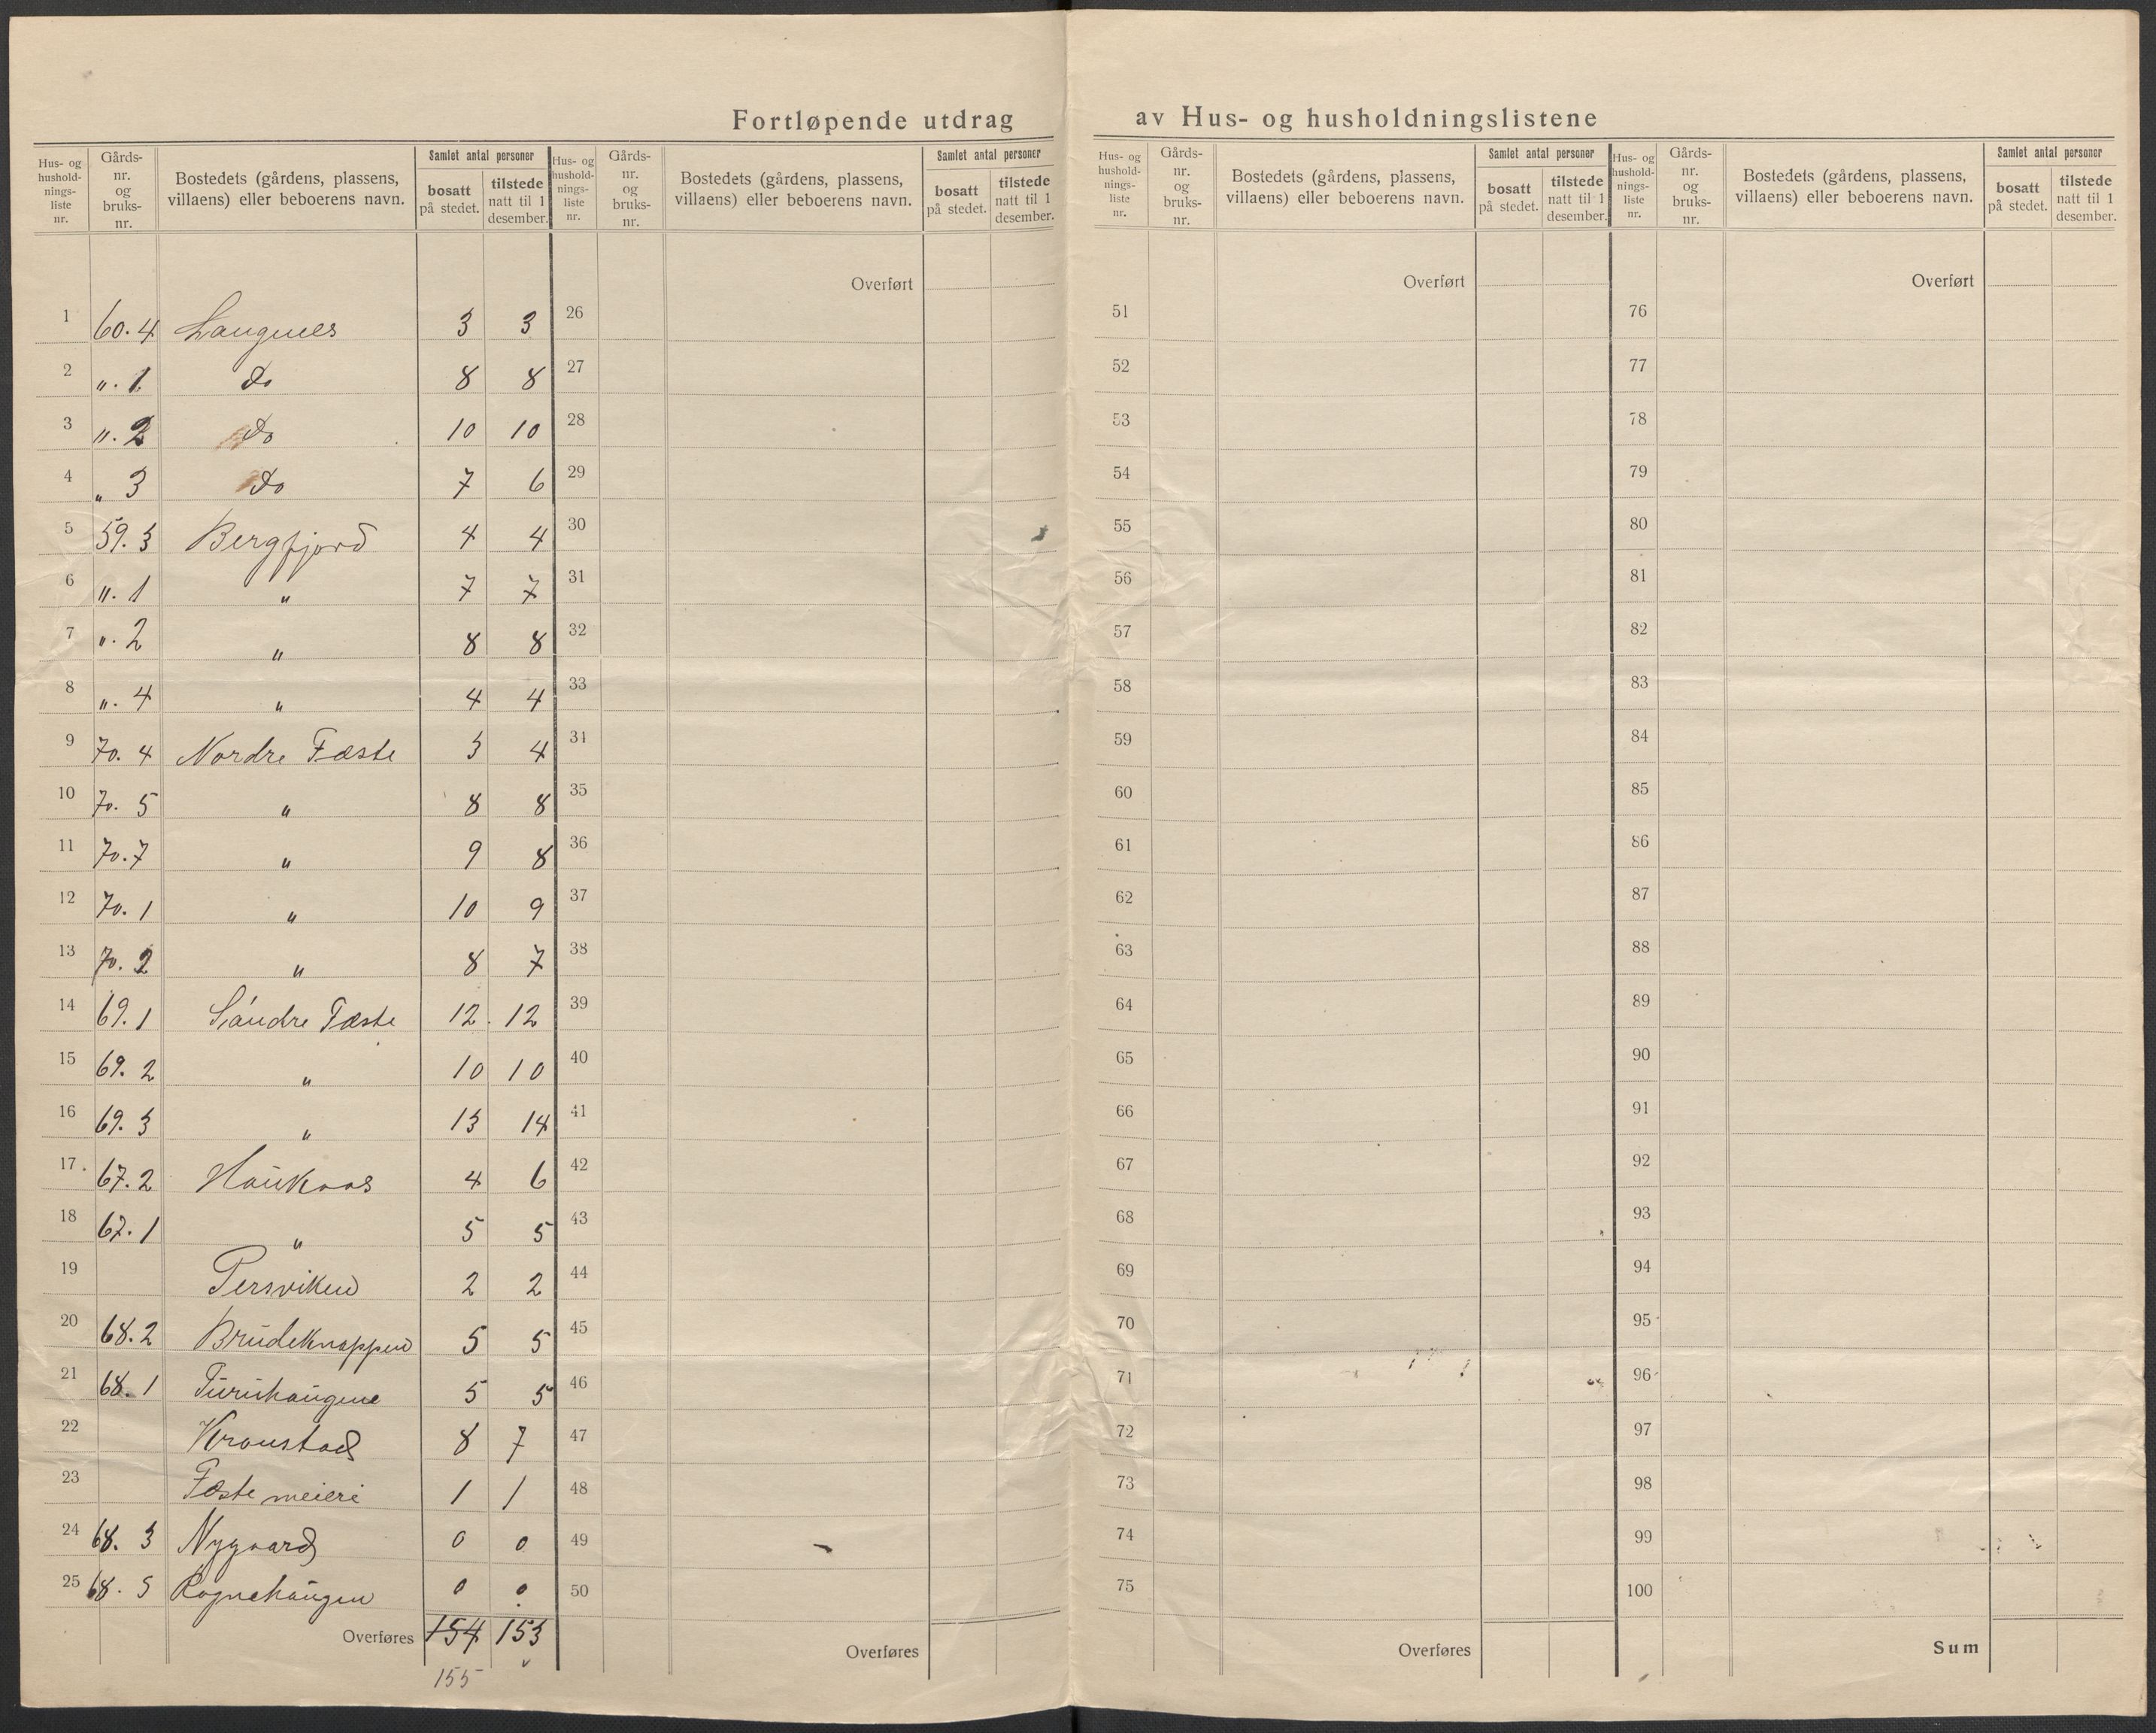 Fortløpende utdrag av Hus- og husholdningslistene
Hus- og husholdnings-liste nr. | Gårds-nr. og bruks-nr. | Bostedets (gårdens, plassens, villaens) eller beboerens navn. | Samlet antal personer | bosatt på stedet. | tilstede natt til 1 desember.
1 60.4 Langnes 3 3
2 ". 1 Do 8 8
3 ". 2 Do 10 10
4 " 3 Do 7 6
5 59.3 Bergfjord 4 4
6 ". 1 " 7 7
7 ". 2 " 8 8
8 ". 4 " 4 4
9 70. 4 Nordre Fæste 3 4
10 70. 5 " 8 8
11 70.7 " 9 8
12 70. 1 " 10 9
13 70. 2 " 8 7
14 69. 1 Søndre Fæste 12 12
15 69. 2 " 10 10
16 69. 3 " 13 14
17 67.2 Haukaas 4 6
18 67. 1 " 5 5
19 Persviken 2 2
20 68.2 Brudeknappen 5 5
21 68. 1 Furuhaugene 5 5
22 Kronstad 8 7
23 Fæste meieri 1 1
24 68. 3 Nygaard 0 0
25 68. 5 Rognehaugen 0 0
Overføres 154 153
155
Hus- og husholdnings-liste nr. | Gårds-nr. og bruks-nr. | Bostedets (gårdens, plassens, villaens) eller beboerens navn. | Samlet antal personer | bosatt på stedet. | tilstede natt til 1 desember.
Overført
26
27
28
29
30
31
32
33
31
35
36
37
38
39
40
41
42
43
44
45
46
47
48
49
50
Overføres
Hus- og husholdnings-liste nr. | Gårds-nr. og bruks-nr. | Bostedets (gårdens, plassens, villaens) eller beboerens navn. | Samlet antal personer | bosatt på stedet. | tilstede natt til 1 desember.
Overført
51
52
53
54
55
56
57
58
59
60
61
62
63
64
65
66
67
68
69
70
71
72
73
74
75
Overføres
Hus- og husholdnings-liste nr. | Gårds-nr. og bruks-nr. | Bostedets (gårdens, plassens, villaens) eller beboerens navn. | Samlet antal personer | bosatt på stedet. | tilstede natt til 1 desember.
Overført
76
77
78
79
80
81
82
83
84
85
86
87
88
89
90
91
92
93
94
95
96
97
98
99
100
Sum